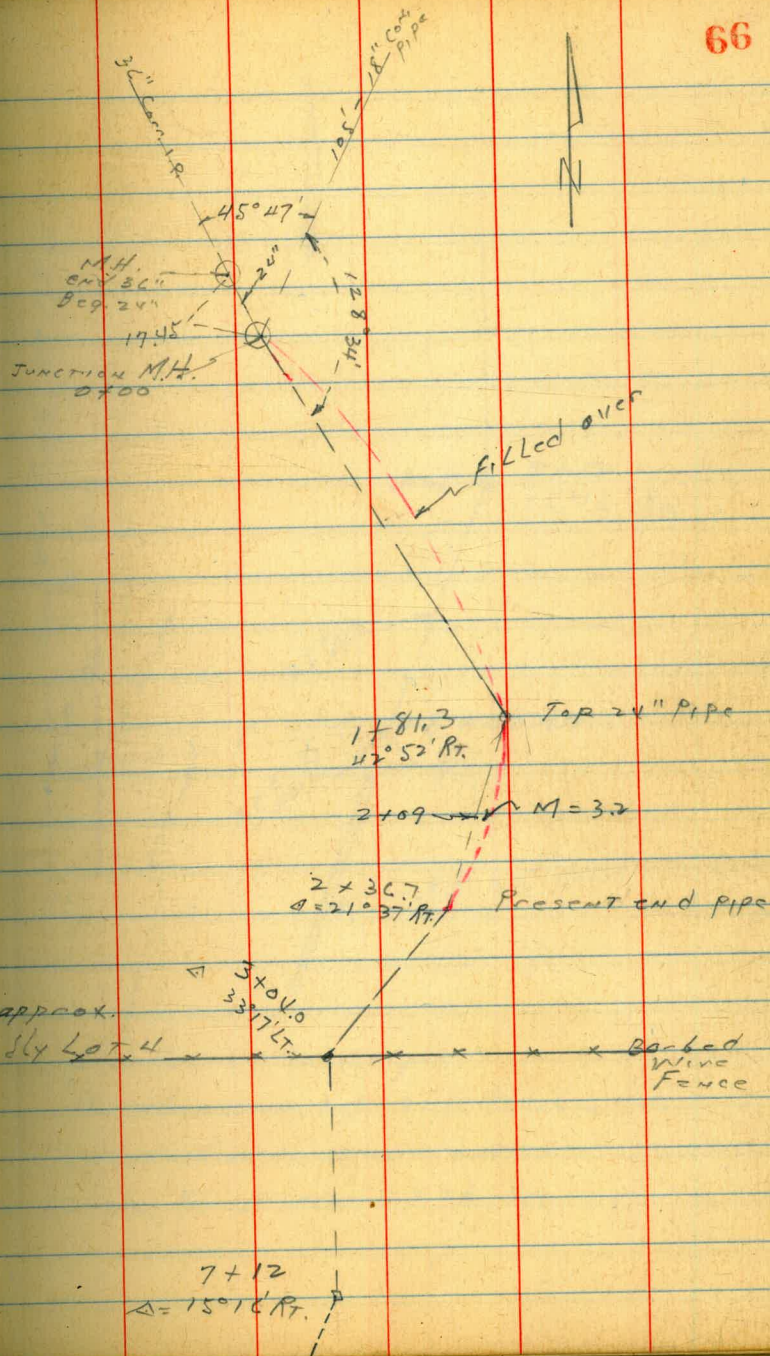 66
36" Corr. I.P.
105' - 18" Conc
pipe
N
45°47'
24"
128°34'
M.H.
end 36"
Beg. 24"
17.45
Junction M.H.
0+00
Filled over
1+81.3
42°52' Rt.
Top 24" Pipe
2+09
M = 3.2
2+36.7
Δ=21°37' Rt.
Present end pipe
Δ 3+04.0
33°17' Lt.
approx.
Lot 4
Barbed
Wire
Fence
7+12
Δ= 15°16' Rt.